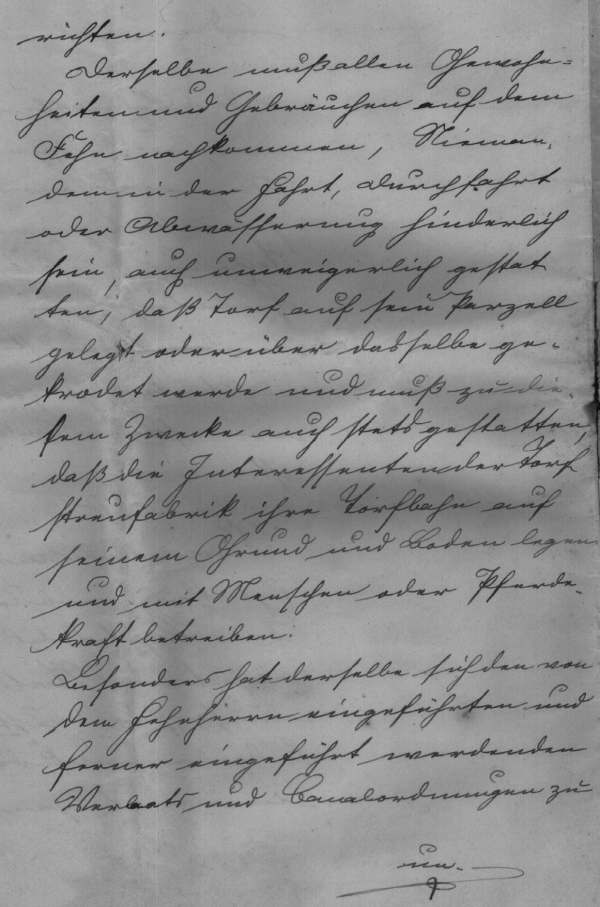 richten.
Derselbe muß allen Gewohn=
heiten und Gebräuchen auf dem
Fehn nachkommen, Nieman,
dem in der Fahrt, Durchfahrt
oder Abwässerung hinderlich
sein, auch unweigerlich gestat
ten, daß Torf auf sein Parzell
gelegt oder über dasselbe ge-
krodet werde und muß zu die
sem Zwecke auch stets gestatten,
daß die Interessenten der Torf
streufabrik ihre Torfbahn auf
seinem Grund und Boden legen
und mit Menschen oder Pferde-
kraft betreiben.
Besonders hat derselbe sich den von
dem Fehnherrn eingeführten und
ferner eingeführt werdenden
Verlaats und Canalordnungen zu
un-